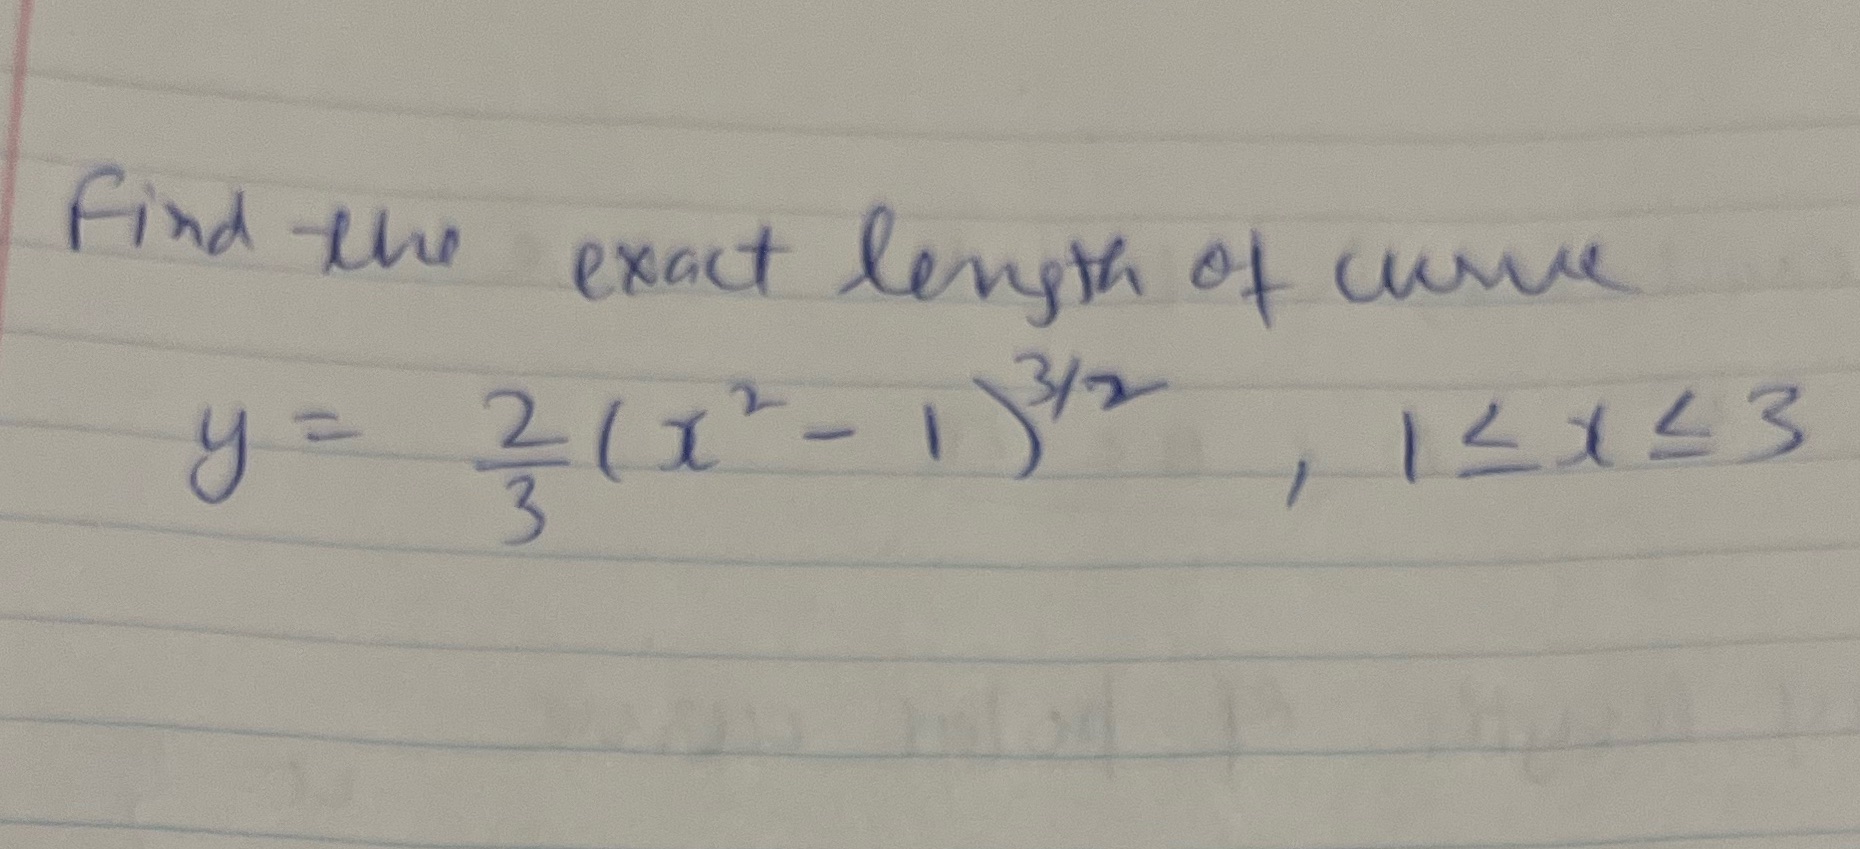 Find the exact length of curve
y = 2/3 (x² - 1)^3/2 , 1 ≤ x ≤ 3